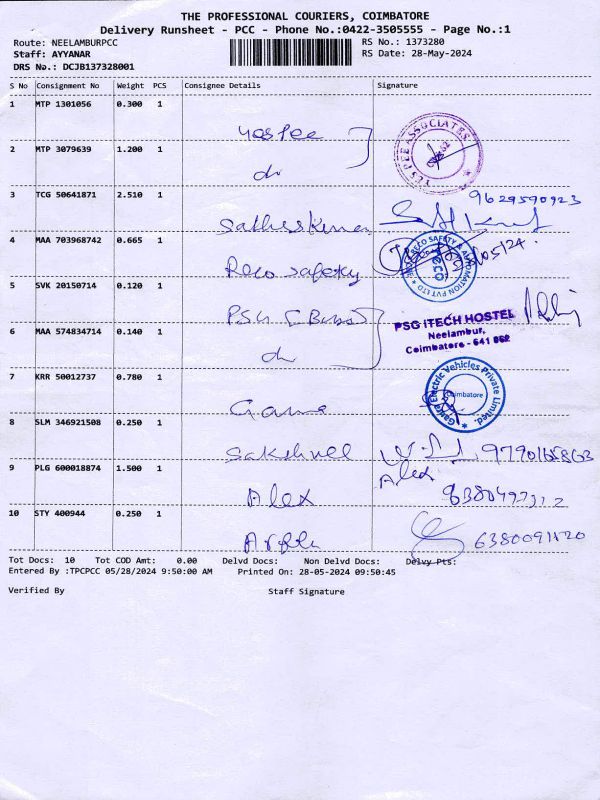 THE PROFESSIONAL COURIERS, COIMBATORE
Delivery Runsheet - PCC - Phone No.:0422-3505555 - Page No.:1
Route: NEELAMBURPCC RS No.: 1373280
Staff: AYYANAR RS Date: 28-May-2024
DRS No.: DCJB137328001
S No Consignment No Weight PCS Consignee Details Signature
1 MTP 1301056 0.300 1
YES PEE ASSOCIATES
2 MTP 3079639 1.200 1
3 TCG 50641871 2.510 1
9629590923
4 MAA 703968742 0.665 1
Reco safety
5 SVK 20150714 0.120 1
PSG
PSG ITECH HOSTEL
Neelambur,
Coimbatore - 641 062
6 MAA 574834714 0.140 1
7 KRR 50012737 0.780 1
Electric Vehicles Private Limited.
Coimbatore
8 SLM 346921508 0.250 1
9 PLG 600018874 1.500 1
Alex Alex
10 STY 400944 0.250 1
Tot Docs: 10 Tot COD Amt: 0.00 Delvd Docs: Non Delvd Docs: Delvy Pts:
Entered By :TPCPCC 05/28/2024 9:50:00 AM Printed On: 28-05-2024 09:50:45
Verified By Staff Signature